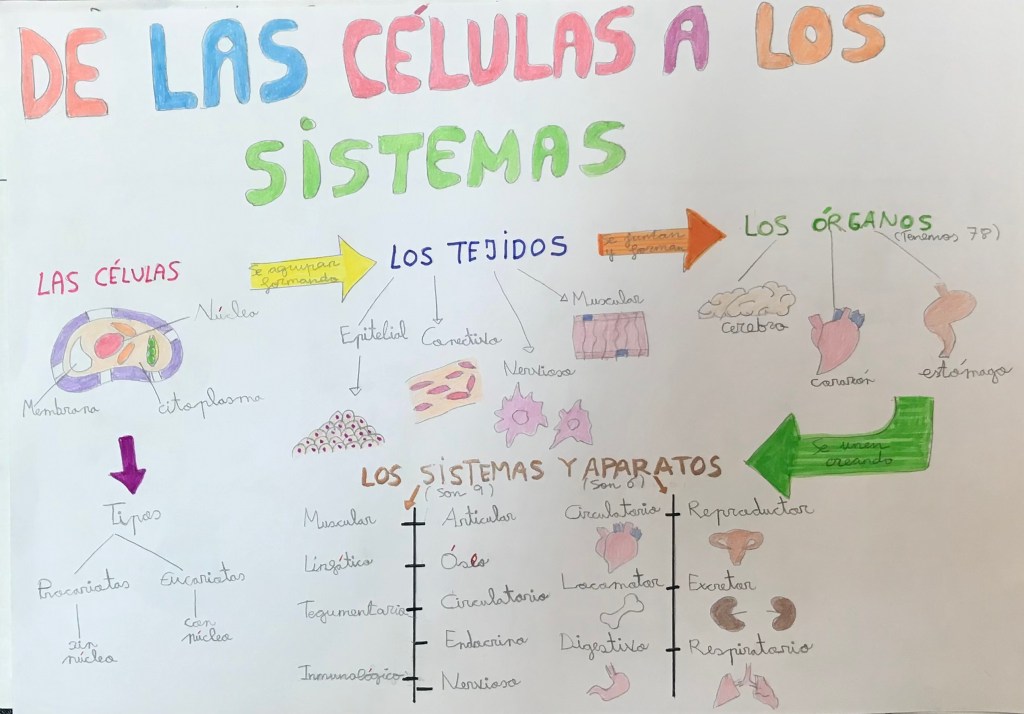 DE LAS CÉLULAS A LOS
SISTEMAS
LAS CÉLULAS
Núcleo
Membrana
citoplasma
Tipos
Procariotas
Eucariotas
sin
núcleo
con
núcleo
Se agrupan
formando
LOS TEJIDOS
Epitelial
Conectivo
Nervioso
Muscular
Se juntan
y forman
LOS ÓRGANOS
(Tenemos 78)
cerebro
corazón
estómago
Se unen
creando
LOS SISTEMAS Y APARATOS
(Son 9)
(Son 6)
Muscular
Articular
Linfático
Óseo
Tegumentario
Circulatorio
Endocrino
Inmunológico
Nervioso
Circulatorio
Reproductor
Locomotor
Excretor
Digestivo
Respiratorio